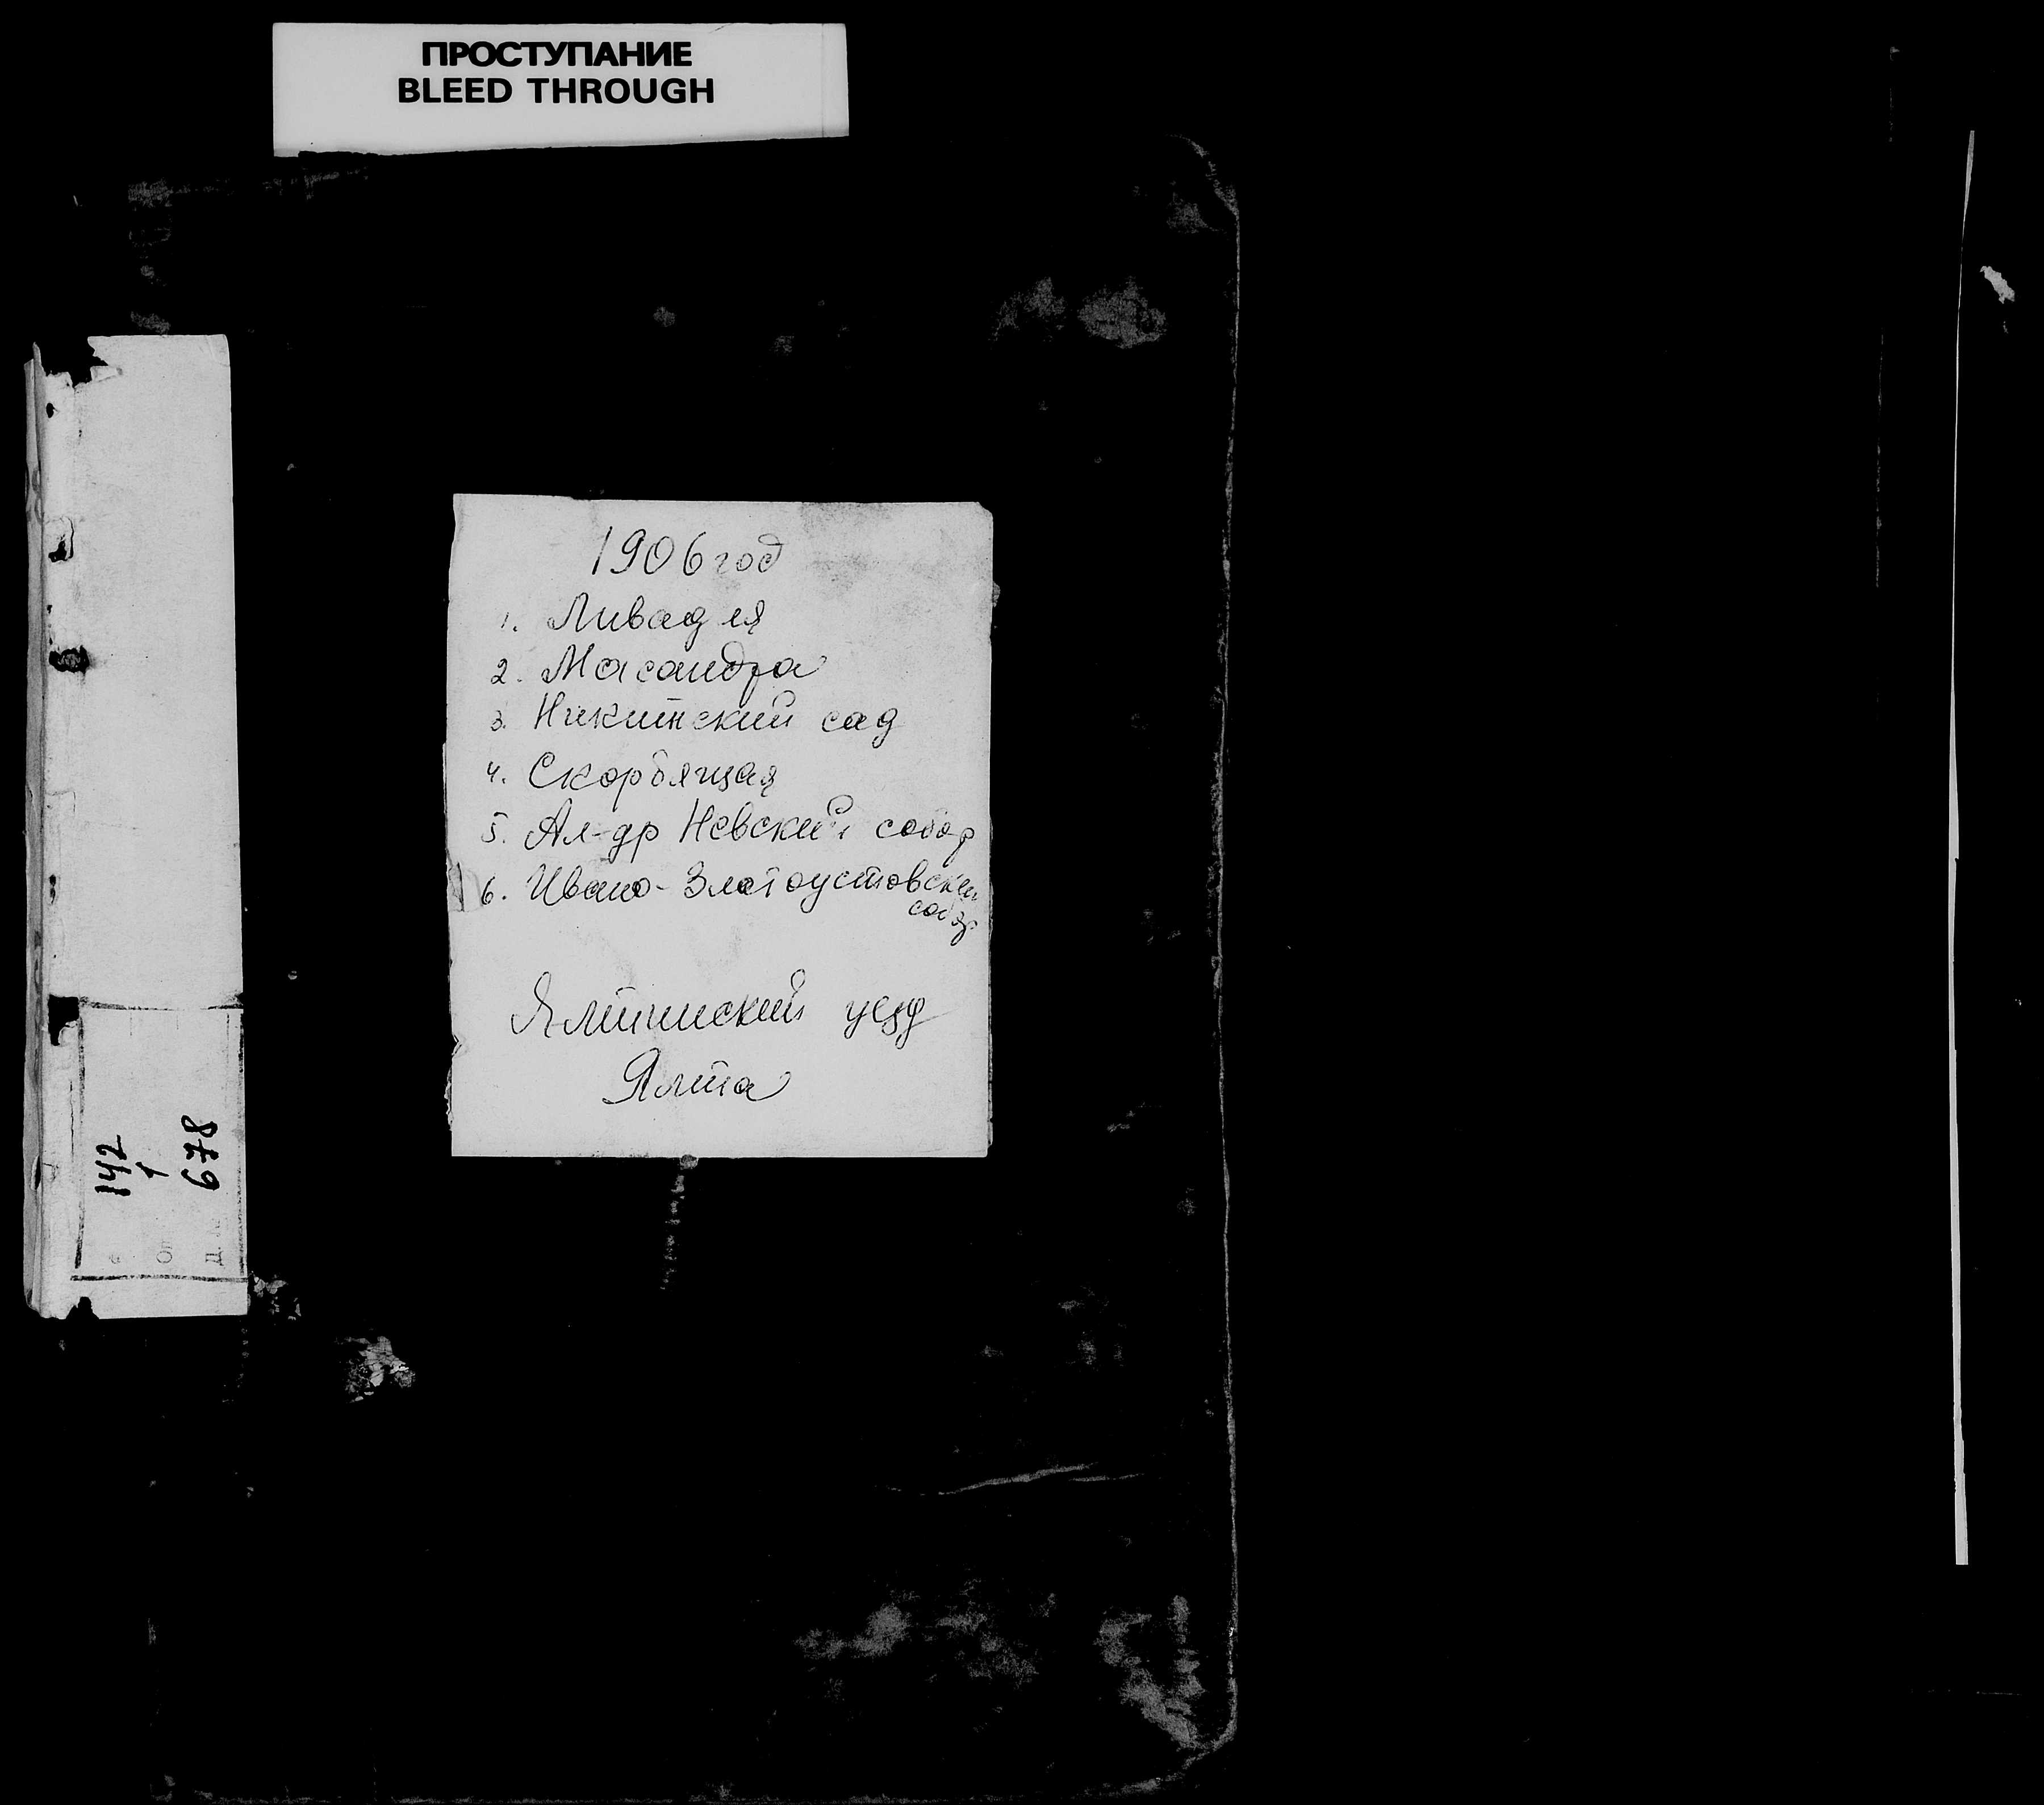 ПРОСТУПАНИЕ
BLEED THROUGH
1906 год
1. Ливадия
2. Масандра
3. Никитский сад
4. Скорбящая
5. Ал-др Невский собор
6. Ивано-Златоустовский
собор
Ялтинский уезд
Ялта
142
1
679